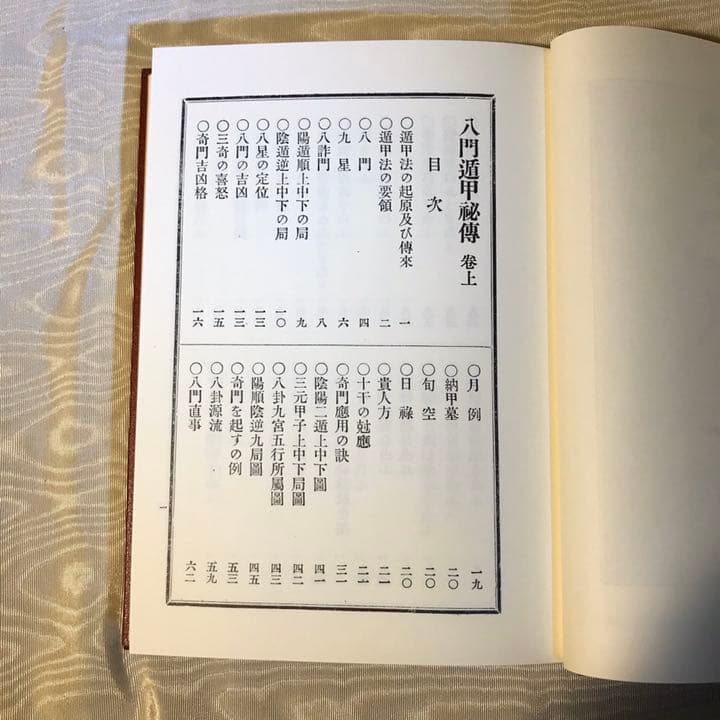 八門遁甲祕傳 卷上
目次
○遁甲法の起原及び傳來 一
○遁甲法の要領 二
○八門 四
○九星 六
○八詐門 八
○陽遁順上中下の局 九
○陰遁逆上中下の局 一〇
○八星の定位 一三
○八門の吉凶 一三
○三奇の喜怒 一五
○奇門吉凶格 一六
○月例 一九
○納甲墓 二〇
○旬空 二〇
○日祿 二〇
○貴人方 二一
○十干の尅應 二六
○奇門應用の訣 三一
○陰陽二遁上中下圖 四一
○三元甲子上中下局圖 四二
○八卦九宮五行所屬圖 四三
○陽順陰逆九局圖 四五
○奇門を起すの例 五三
○八卦源流 五九
○八門直事 六二
一